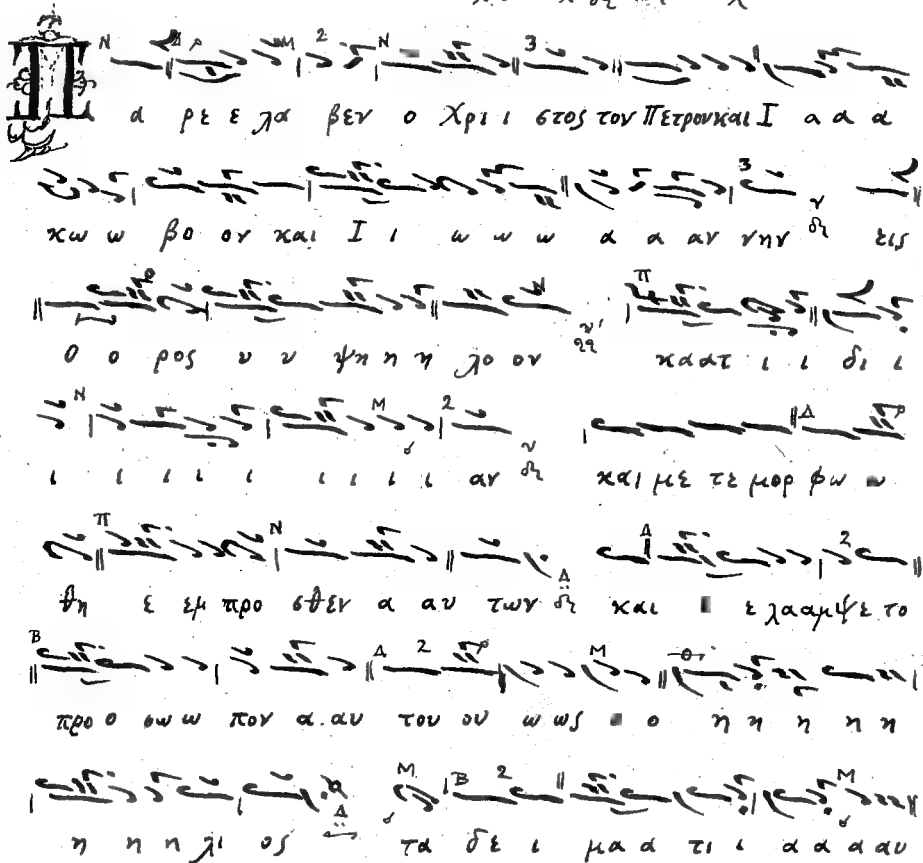 Π α ρε ε λα βεν ο Χρι ι στος τον Πετρον και Ι α α α
κω ω βο ον και Ι ι ω ω ω α α αν νην εις
Ο ο ρος υ υ ψη η η λο ον κα ατ ι ι δι ι
ι ι ι ι ι ι ι ι ι αν και με τε μορ φω ω
θη ε εμ προ σθεν α αυ των και ε λα αμψε το
προ ο σω ω πον α αυ του ου ω ως ο η η η η η
η η η λι ος τα δε ι μα α τι ι α α α αυ